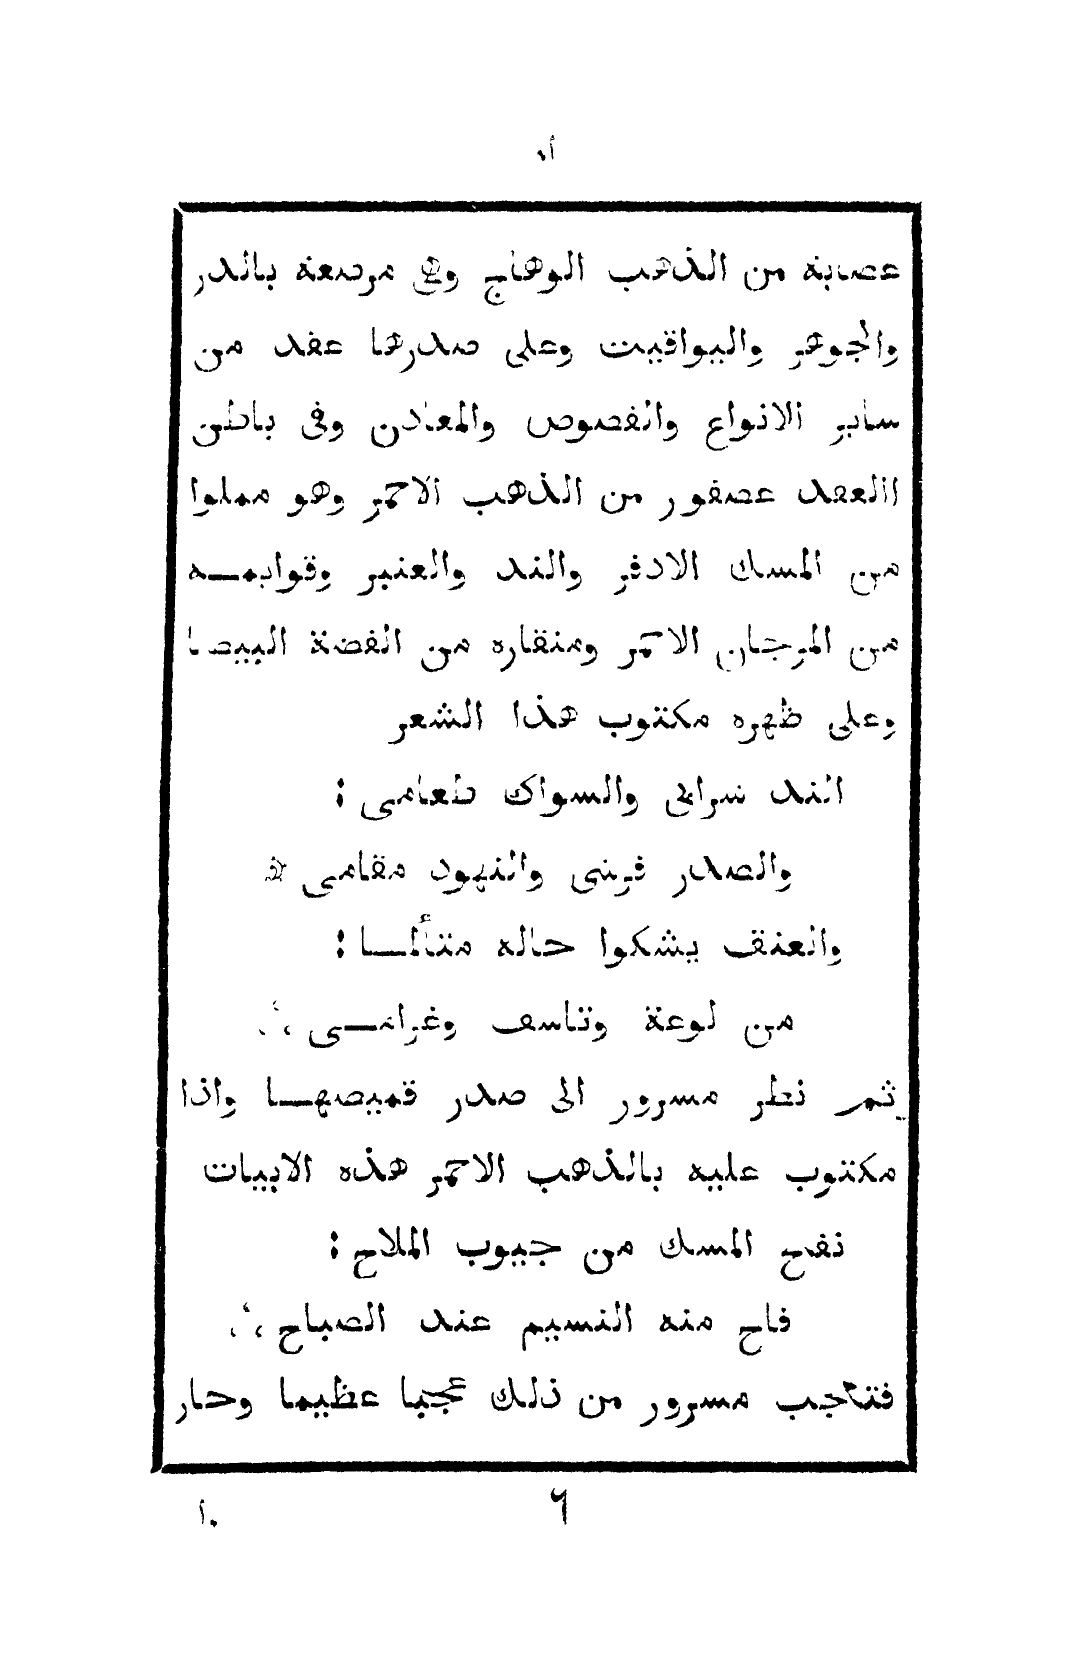 عصابة من الذهب الوهاج وهى مرصعة بالدر
والجوهر واليواقيت وعلى صدرها عقد من
ساير الانواع والفصوص والمعادن وفى باطن
االعقد عصفور من الذهب الاحمر وهو مملوا
من المسك الادفر والند والعنبر وقوايمـــه
من المرجان الاحمر ومنقاره من الفضة البيضا
وعلى ظهره مكتوب هذا الشعر
الند شرابى والسواك طعامى :
والصدر فرشى والنهود مقامى ☆
والعنق يشكوا حاله متألمــا :
من لوعة وتاسف وغرامــى ∴
ثم نظر مسرور الى صدر قميصهــا واذا
مكتوب عليه بالذهب الاحمر هذه الابيات
نفح المسك من جيوب الملاح :
فاح منه النسيم عند الصباح ∴
فتعاجب مسرور من ذلك عجبا عظيما وحار
٦